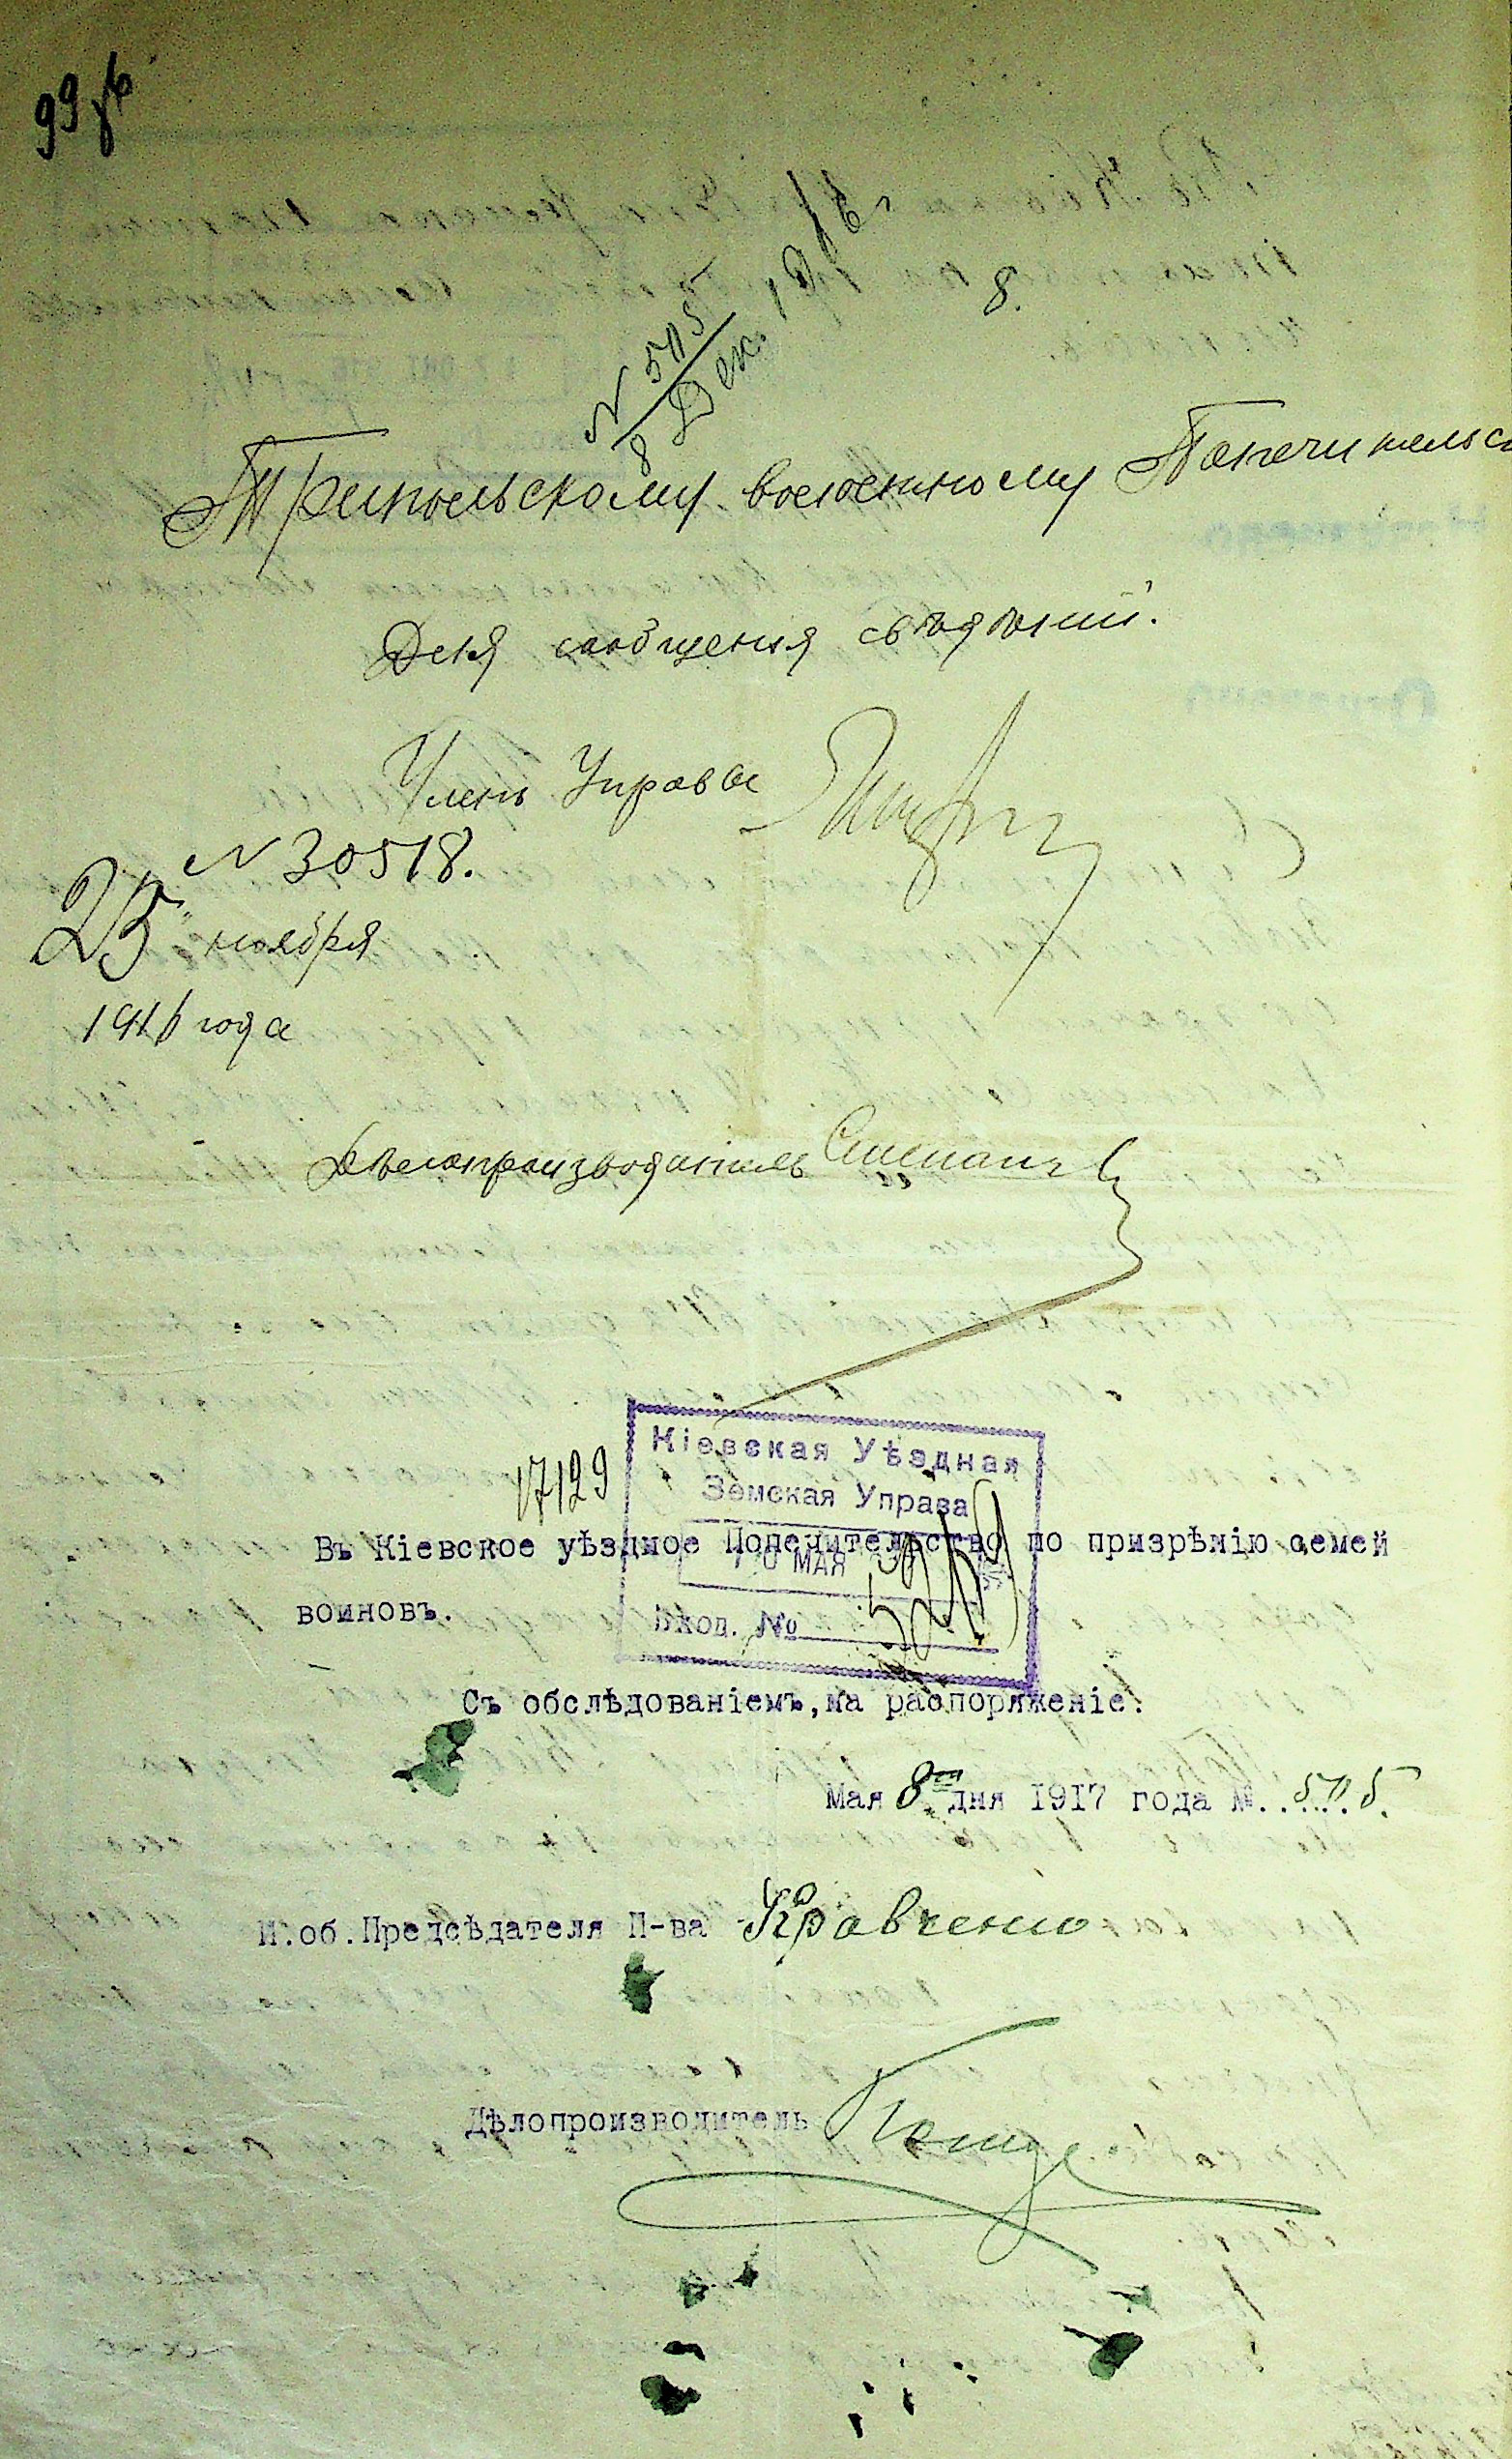 99
8.
N 5115
8 Дек.
Трипольскому волостному Попечительс
Для сообщения свѣдѣний.
Членъ Управы
N 30518.
25 ноября
1916 года
Дѣлопроизводитель
17129
Кіевская Уѣздная
Земская Управа
МАЯ
Вход. №
Въ Кіевское уѣздное Попечительство по призрѣнію семей
воиновъ.
Съ обслѣдованіемъ,на распоряженіе.
Мая 8го дня 1917 года №
И.об.Предсѣдателя П-ва Кравченко
Дѣлопроизводитель